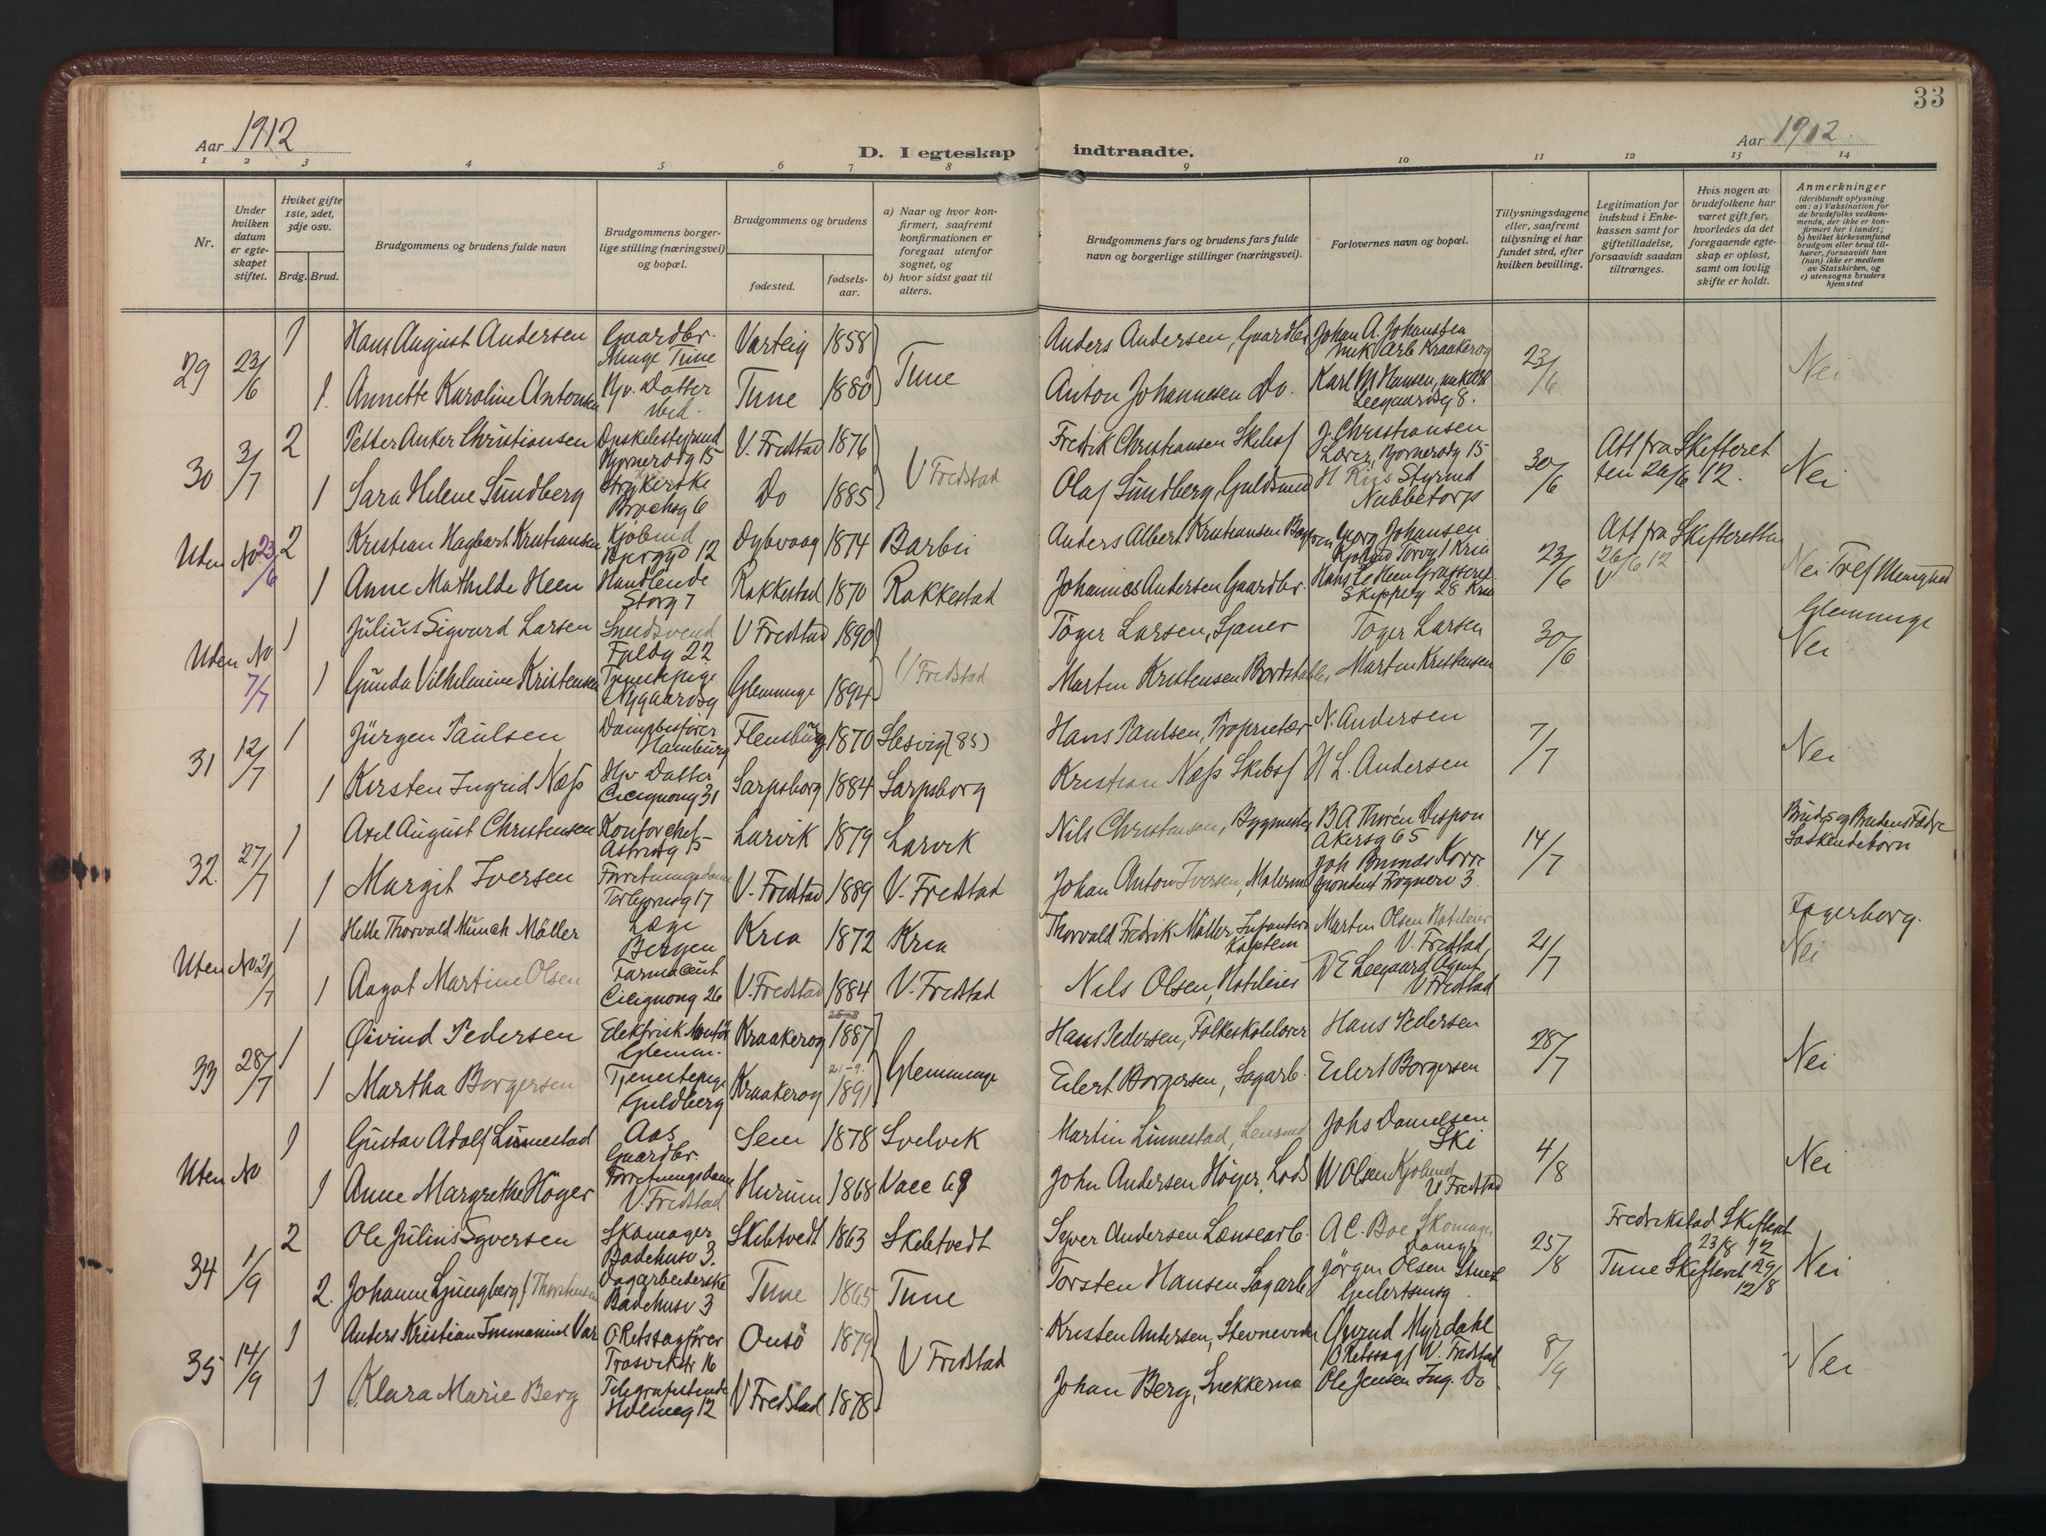 33
Aar 1912
D. I egteskap indtraadte.
Aar 1912
1 2 3 4 5 6 7 8 9 10 11 12 13 14
Nr.
Under hvilken datum er egteskapet stiftet.
Hviket gifte 1ste, 2det, 3dje osv.
Brdg. Brud.
Brudgommens og brudens fulde navn
Brudgommens borgerlige stilling (næringsvei) og bopæl.
Brudgommens og brudens
fødested.
fødselsaar.
a) Naar og hvor konfirmert, saafremt konfirmationen er foregaat utenfor sognet, og
b) hvor sidst gaat til alters.
Brudgommens fars og brudens fars fulde navn og borgerlige stillinger (næringsvei).
Forlovernes navn og bopæl.
Tillysningsdagene eller, saafremt tillysning ei har fundet sted, efter hvilken bevilling.
Legitimation for indskud i Enkekassen samt for giftetilladelse, forsaavidt saadan tiltrænges.
Hvis nogen av brudefolkene har været gift før, hvorledes da det foregaaende egteskap er opløst, samt om lovlig skifte er holdt.
Anmerkninger
(deriblandt oplysning om: a) Vaksination for de brudefolks vedkommende, der ikke er konfirmert her i landet; b) hvilket kirkesamfund brudgom eller brud tilhører, forsaavidt han (hun) ikke er medlem av Statskirken, og c) utensogns bruders hjemsted
29 23/6 1 Hans August Andersen Gaardbr. Tune Varteig 1858 Tune Anders Andersen, Gaardbr Johan A. Johanssen mek Arb Kraakerøy 23/6 Nei
1. Annette Karoline Antonsen Hjv. Datter ibid. Tune 1880 Anton Johannesen Do. Karl M Hansen, Leegaardsg 8.
30 3/7 2 Petter Anker Christiansen Bjørnerødg 15 V. Fredstad 1876 V Fredstad Fredrik Christiansen Skibsf J. Christiansen Lærer, Bjornerødg 15 30/6 Att fra Skifteret ten 26/6 12. Nei
1 Sara Helene Sundberg Strykirske Brochsg 6 Do 1885 Olaf Sundberg, Guldsmed H Riis Styrmd Nabbetorp
Uden No 23/6 2 Kristian Hagbart Kristiansen Kjøbmd 12 Dybvaag 1874 Barbu Anders Albert Kristiansen Georg Johansen Kjøbmd Torvg 1 Kria 23/6 Att fra Skifteretten 26/6 12 Nei Tref Menighed
1 Anne Mathilde Heen Handlende Storg 7 Rakkestad 1870 Rakkestad Johannes Andersen Gaardbr. Hans L Heen Skipperg 28 Kria
Uden No 7/7 1 Julius Sigvard Larsen Smedsvend Foldg 22 V Fredstad 1890 V Fredstad Töger Larsen, Sjauer Töger Larsen 30/6 Glemminge Nei
1 Gunda Vilhelmine Kristensen Tjenestepige Nygaardsg Glemminge 1894 Martin Kristensen Martin Kristensen
31 12/7 1 Jürgen Paulsen Dampbefører Hamburg Flensburg 1870 Slesvig (85) Hans Paulsen, Proprietær N. Andersen 7/7 Nei
1 Kirsten Ingrid Næss Hjv Datter Cicignong 31 Sarpsborg 1884 Sarpsborg Kristian Næss Skibsf H L. Andersen
32. 27/7 1 Axel August Christensen Kontorchef Astridsg 15 Larvik 1879 Larvik Nils Christensen, Bygmester B A Thorén Dispon Akersg 65 14/7 Brudgs og Brudens Fædre Søskendebørn
1 Margit Iversen Forretningsdame Torbjornsg 17 V. Fredstad 1889 V. Fredstad Johan Anton Iversen, Malerm Joh Korre spondent Frognerv 3
Uten No 21/7 1 Helle Thorvald Munch Møller Læge Bergen Kria 1872 Kria Thorvald Fredrik Møller, Infanteri Kaptein Martin Olsen Hoteleier V. Fredstad, 21/7 Fagerborg. Nei
1 Aagot Martine Olsen Farmaceut Cicignong 26 V. Fredstad 1884 V. Fredstad Nils Olsen, Hoteleier D E Leegaard Agent V Fredstad
33 28/7 1 Øivind Pedersen Elektrisk Montör Glemm. Kraakerøy 1887 Glemminge Hans Pedersen, Folkeskolelærer Hans Pedersen 28/7 Nei
1 Martha Borgersen Tjenestepige Guldberg Kraakerøy 21-9. 1891 Eilert Borgersen, Sagarb. Eilert Borgersen
Uten No 1 Gustav Adolf Linnestad Aas Gaardbr. Sem 1878 Svelvik Martin Linnestad, Lensmd Johs Danielsen Ski 4/8 Nei
1 Anne Margrethe Höger Forretningsdame V. Fredstad Hurum 1868 John Andersen Höger, Lods W Olsen Kjøbmd V Fredstad
34 1/9 2 Ole Julius Syversen Skomager Badehusv 3. Skibtvedt 1863 Skibtvedt Syver Andersen Lænsearb. A C. Boe Skomager 25/8 Fredrikstad Skifteret 23/8 12 Nei
2. Johanne Ljungberg f Thorstensen Dagarbeiderske Badehusv 3 Tune 1865 Tune Torsten Hansen Sagarb Jørgen Olsen Tune Skifteret 29/8 12
35 14/9 1 Anders Kristian Immanuel Var O Retssagfører Trosvikstr 16 Onsö 1879 V Fredstad Kristen Andersen, Stevnevidne Øyvind Myrdahl O Retssagf V. Fredstad 8/9 Nei
1 Klara Marie Berg Telegrafistinde Holmeg 12 V Fredstad 1878 Johan Berg, Snekkerm Ole Jensen Ing. Do